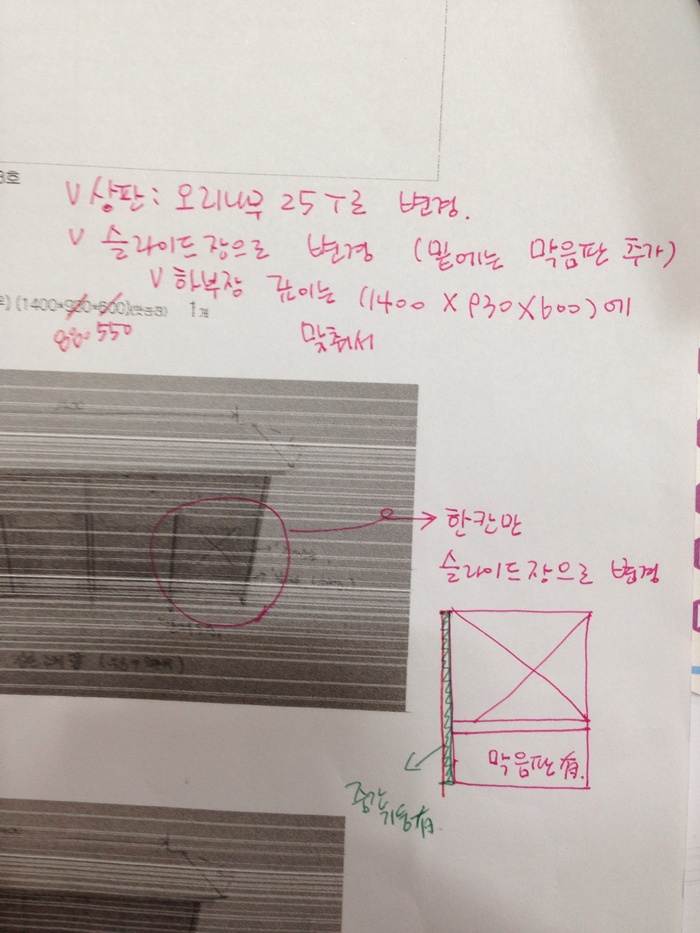 3호
V 상판: 오리나무 25T로 변경.
V 슬라이드장으로 변경 (밑에는 막음판 추가)
V 하부장 깊이는 (1400 X 930X600)에
(1400*920*600) 1개
800 550
맞춰서
한칸만
슬라이드장으로 변경
막음판 有.
중간기둥有.